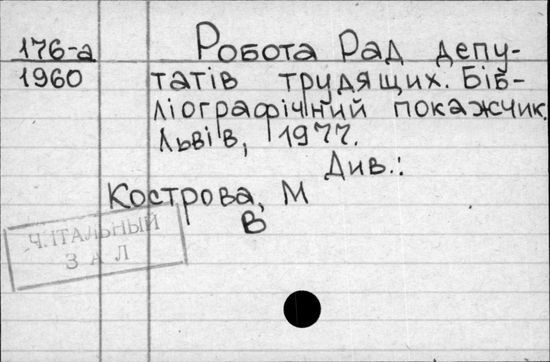 176-а
1960
Робота Рад депу-
татів трудящих. Біб-
ліографічний покажчик,
Львів, 1977.
Див.:
Кострова, М
В
ЧИТАЛЬНЫЙ
ЗАЛ